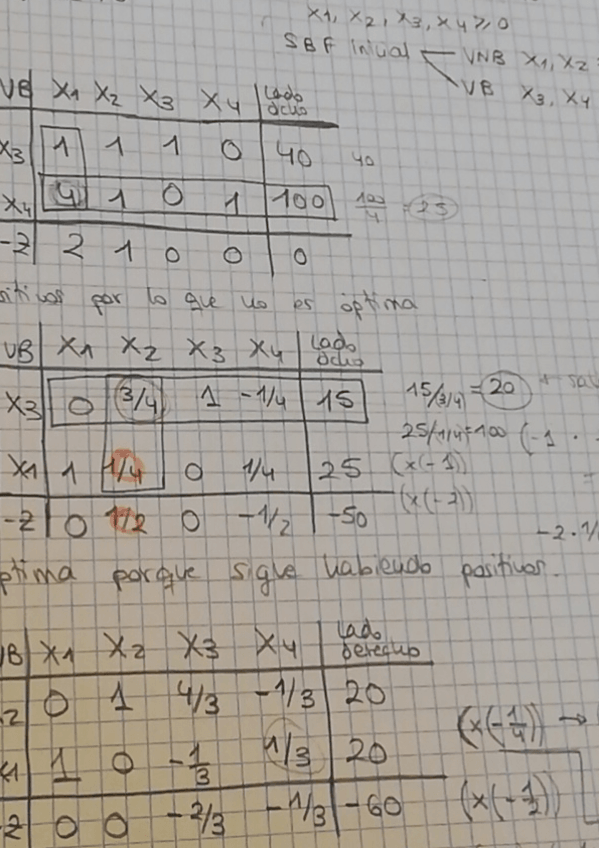 x1, x2, x3, x4 ≥ 0
SBF inicial VNB x1, x2
VB x3, x4
VB x1 x2 x3 x4 Lado dcho
x3 1 1 1 0 40 40
x4 4 1 0 1 100 100/4 = 25
-z 2 1 0 0 0
sitivos por lo que no es óptima
VB x1 x2 x3 x4 Lado dcho
x3 0 3/4 1 -1/4 15 15/3/4) = 20
x1 1 1/4 0 1/4 25 25/1/4=100 (-1 ·
(x(-1))
-z 0 1/2 0 -1/2 -50 (x(-2))
-2·1/
ptima porque sigue habiendo positivos.
VB x1 x2 x3 x4 Lado derecho
2 0 1 4/3 -1/3 20 (x(-1/4)) →
x1 1 0 -1/3 1/3 20
z 0 0 -2/3 -1/3 -60 (x(-1/2))